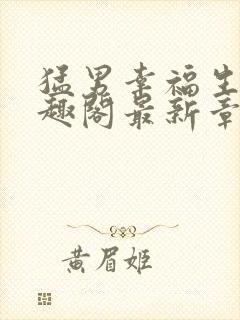 猛男幸福生
趣阁最新章
黄眉姬